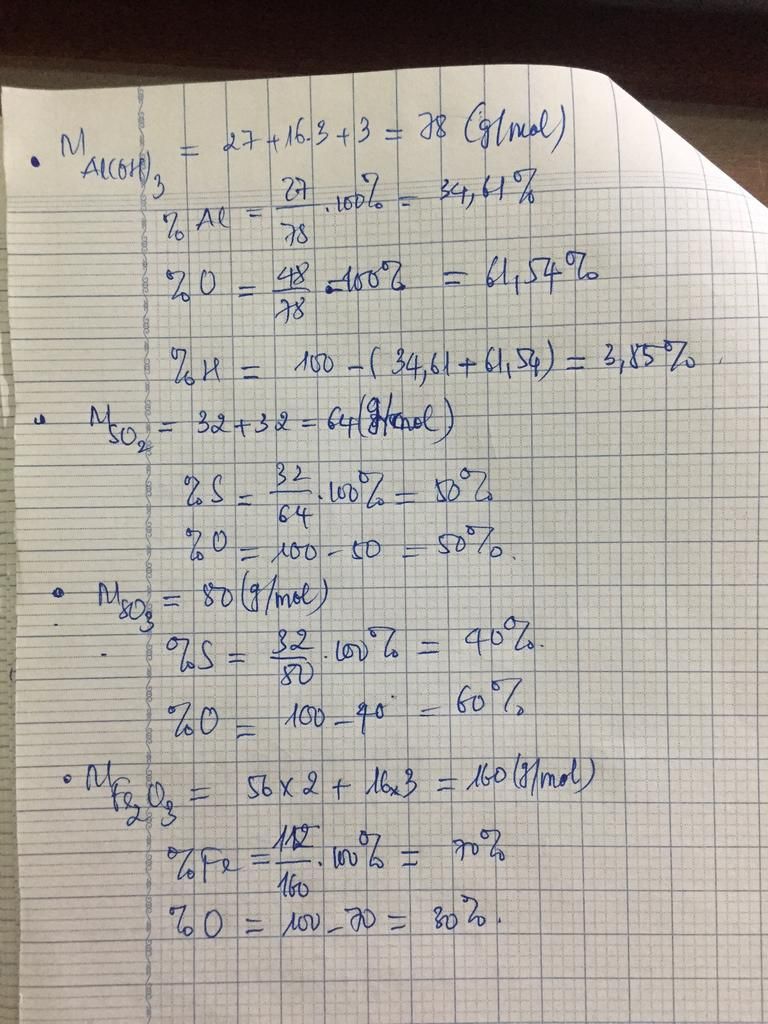 • M Al(OH)₃ = 27 + 16.3 + 3 = 78 (g/mol)
%Al = 27/78 . 100% = 34,61%
%O = 48/78 . 100% = 61,54%
%H = 100 - (34,61 + 61,54) = 3,85%.
• M SO₂ = 32 + 32 = 64 (g/mol)
%S = 32/64 . 100% = 50%
%O = 100 - 50 = 50%.
• M SO₃ = 80 (g/mol)
- %S = 32/80 . 100% = 40%.
%O = 100 - 40 = 60%
• M Fe₂O₃ = 56 x 2 + 16 x 3 = 160 (g/mol)
%Fe = 112/160 . 100% = 70%
%O = 100 - 70 = 30%.